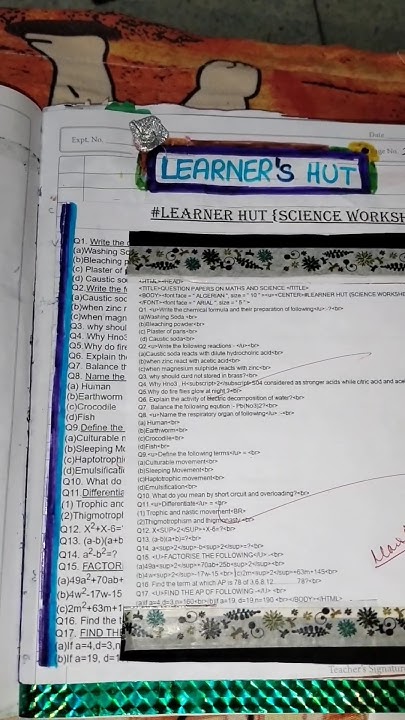 Expt. No.
Date
Page No.
LEARNER'S HUT
#LEARNER HUT {SCIENCE WORKSH
Q1. Write the
(a)Washing So
(b)Bleaching p
(c) Plaster of
(d) Caustic so
Q2.Write the f
(a)Caustic soo
(b)when zinc r
(c)when magn
Q3. why shoul
Q4. Why Hno3
Q5.Why do fire
Q6. Explain th
Q7. Balance th
Q8. Name the
(a) Human
(b)Earthworm
(c)Crocodile
(d)Fish
Q9.Define the
(a)Culturable r
(b)Sleeping Mo
(c)Haptotrophi
(d)Emulsificati
Q10. What do
Q11.Differentia
(1) Trophic and
(2)Thigmotropl
Q12. X²+X-6=
Q13. (a-b)(a+b
Q14. a²-b²=?
Q15. FACTORI
(a)49a²+70ab+
(b)4w²-17w-15
(c)2m²+63m+1
Q16. Find the t
Q17. FIND THE
(a)If a=4,d=3,n
(b)If a=19, d=1
<TITLE>QUESTION PAPERS ON MATHS AND SCIENCE </TITLE>
<BODY><font face = " ALGERIAN ", size = " 10 "><u><CENTER>#LEARNER HUT {SCIENCE WORKSHE
</FONT><font face = " ARIAL ", size = " 5 ">
Q1. <u>Write the chemical formula and their preparation of following</u> -?<br>
(a)Washing Soda <br>
(b)Bleaching powder<br>
(c) Plaster of paris<br>
(d) Caustic soda<br>
Q2.<u>Write the following reactions - </u><br>
(a)Caustic soda reacts with dilute hydrochloric acid<br>
(b)when zinc react with acetic acid<br>
(c)when magnesium sulphide reacts with zinc<br>
Q3. why should curd not stored in brass?<br>
Q4. Why Hno3 , H<subscript>2</subscript>S04 considered as stronger acids while citric acid and ace
Q5.Why do fire flies glow at night.?<br>
Q6. Explain the activity of electric decomposition of water?<br>
Q7. Balance the following eqution:- Pb(No3)2?<br>
Q8. <u>Name the respiratory organ of following</u> :-<br>
(a) Human<br>
(b)Earthworm<br>
(c)Crocodile<br>
(d)Fish<br>
Q9.<u>Define the following terms</u> = <br>
(a)Culturable movement<br>
(b)Sleeping Movement<br>
(c)Haptotrophic movement<br>
(d)Emulsification<br>
Q10. What do you mean by short circuit and overloading?<br>
Q11.<u>Differentiate</u> = <br>
(1) Trophic and nastic movement<BR>
(2)Thigmotrophism and thigmonasty<br>
Q12. X<SUP>2</SUP>+X-6=?<br>
Q13. (a-b)(a+b)=?<br>
Q14. a<sup>2</sup>-b<sup>2</sup>=?<br>
Q15. <U>FACTORISE THE FOLLOWING</U>-<br>
(a)49a<sup>2</sup>+70ab+25b<sup>2</sup><br>
(b)4w<sup>2</sup>-17w-15 <br>(c)2m<sup>2</sup>+63m+145<br>
Q16. Find the term at which AP is 78 of 3,6,8,12..........78?<br>
Q17. <U>FIND THE AP OF FOLLOWING-</U> <br>
(a)If a=4,d=3,n=160<br>(b)If a=19, d=19,n=190 <br></BODY></HTML>
Teacher's Signature